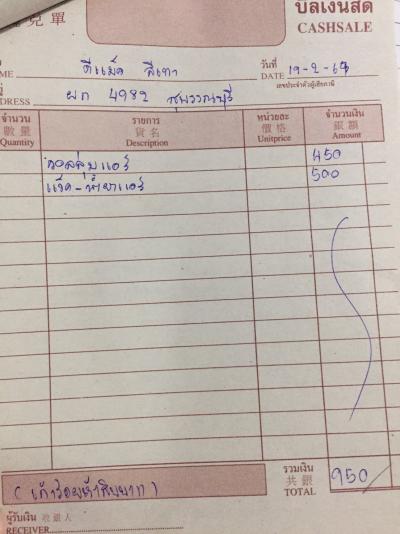 免 單
บิลเงินสด
CASHSALE
NAME ดีแม็ค สีเทา
วันที่ DATE 19-2-67
เลขประจำตัวผู้เสียภาษี
ADDRESS ผก 4982 สุพรรณบุรี
จำนวน รายการ หน่วยละ จำนวนเงิน
數量 貨名 價格 銀額
Quantity Description Unitprice Amount
450
แว็ค-น้ำยาแอร์ 500
รวมเงิน
共銀
TOTAL 950/
(เก้าร้อยห้าสิบบาท)
ผู้รับเงิน 收銀人
RECEIVER